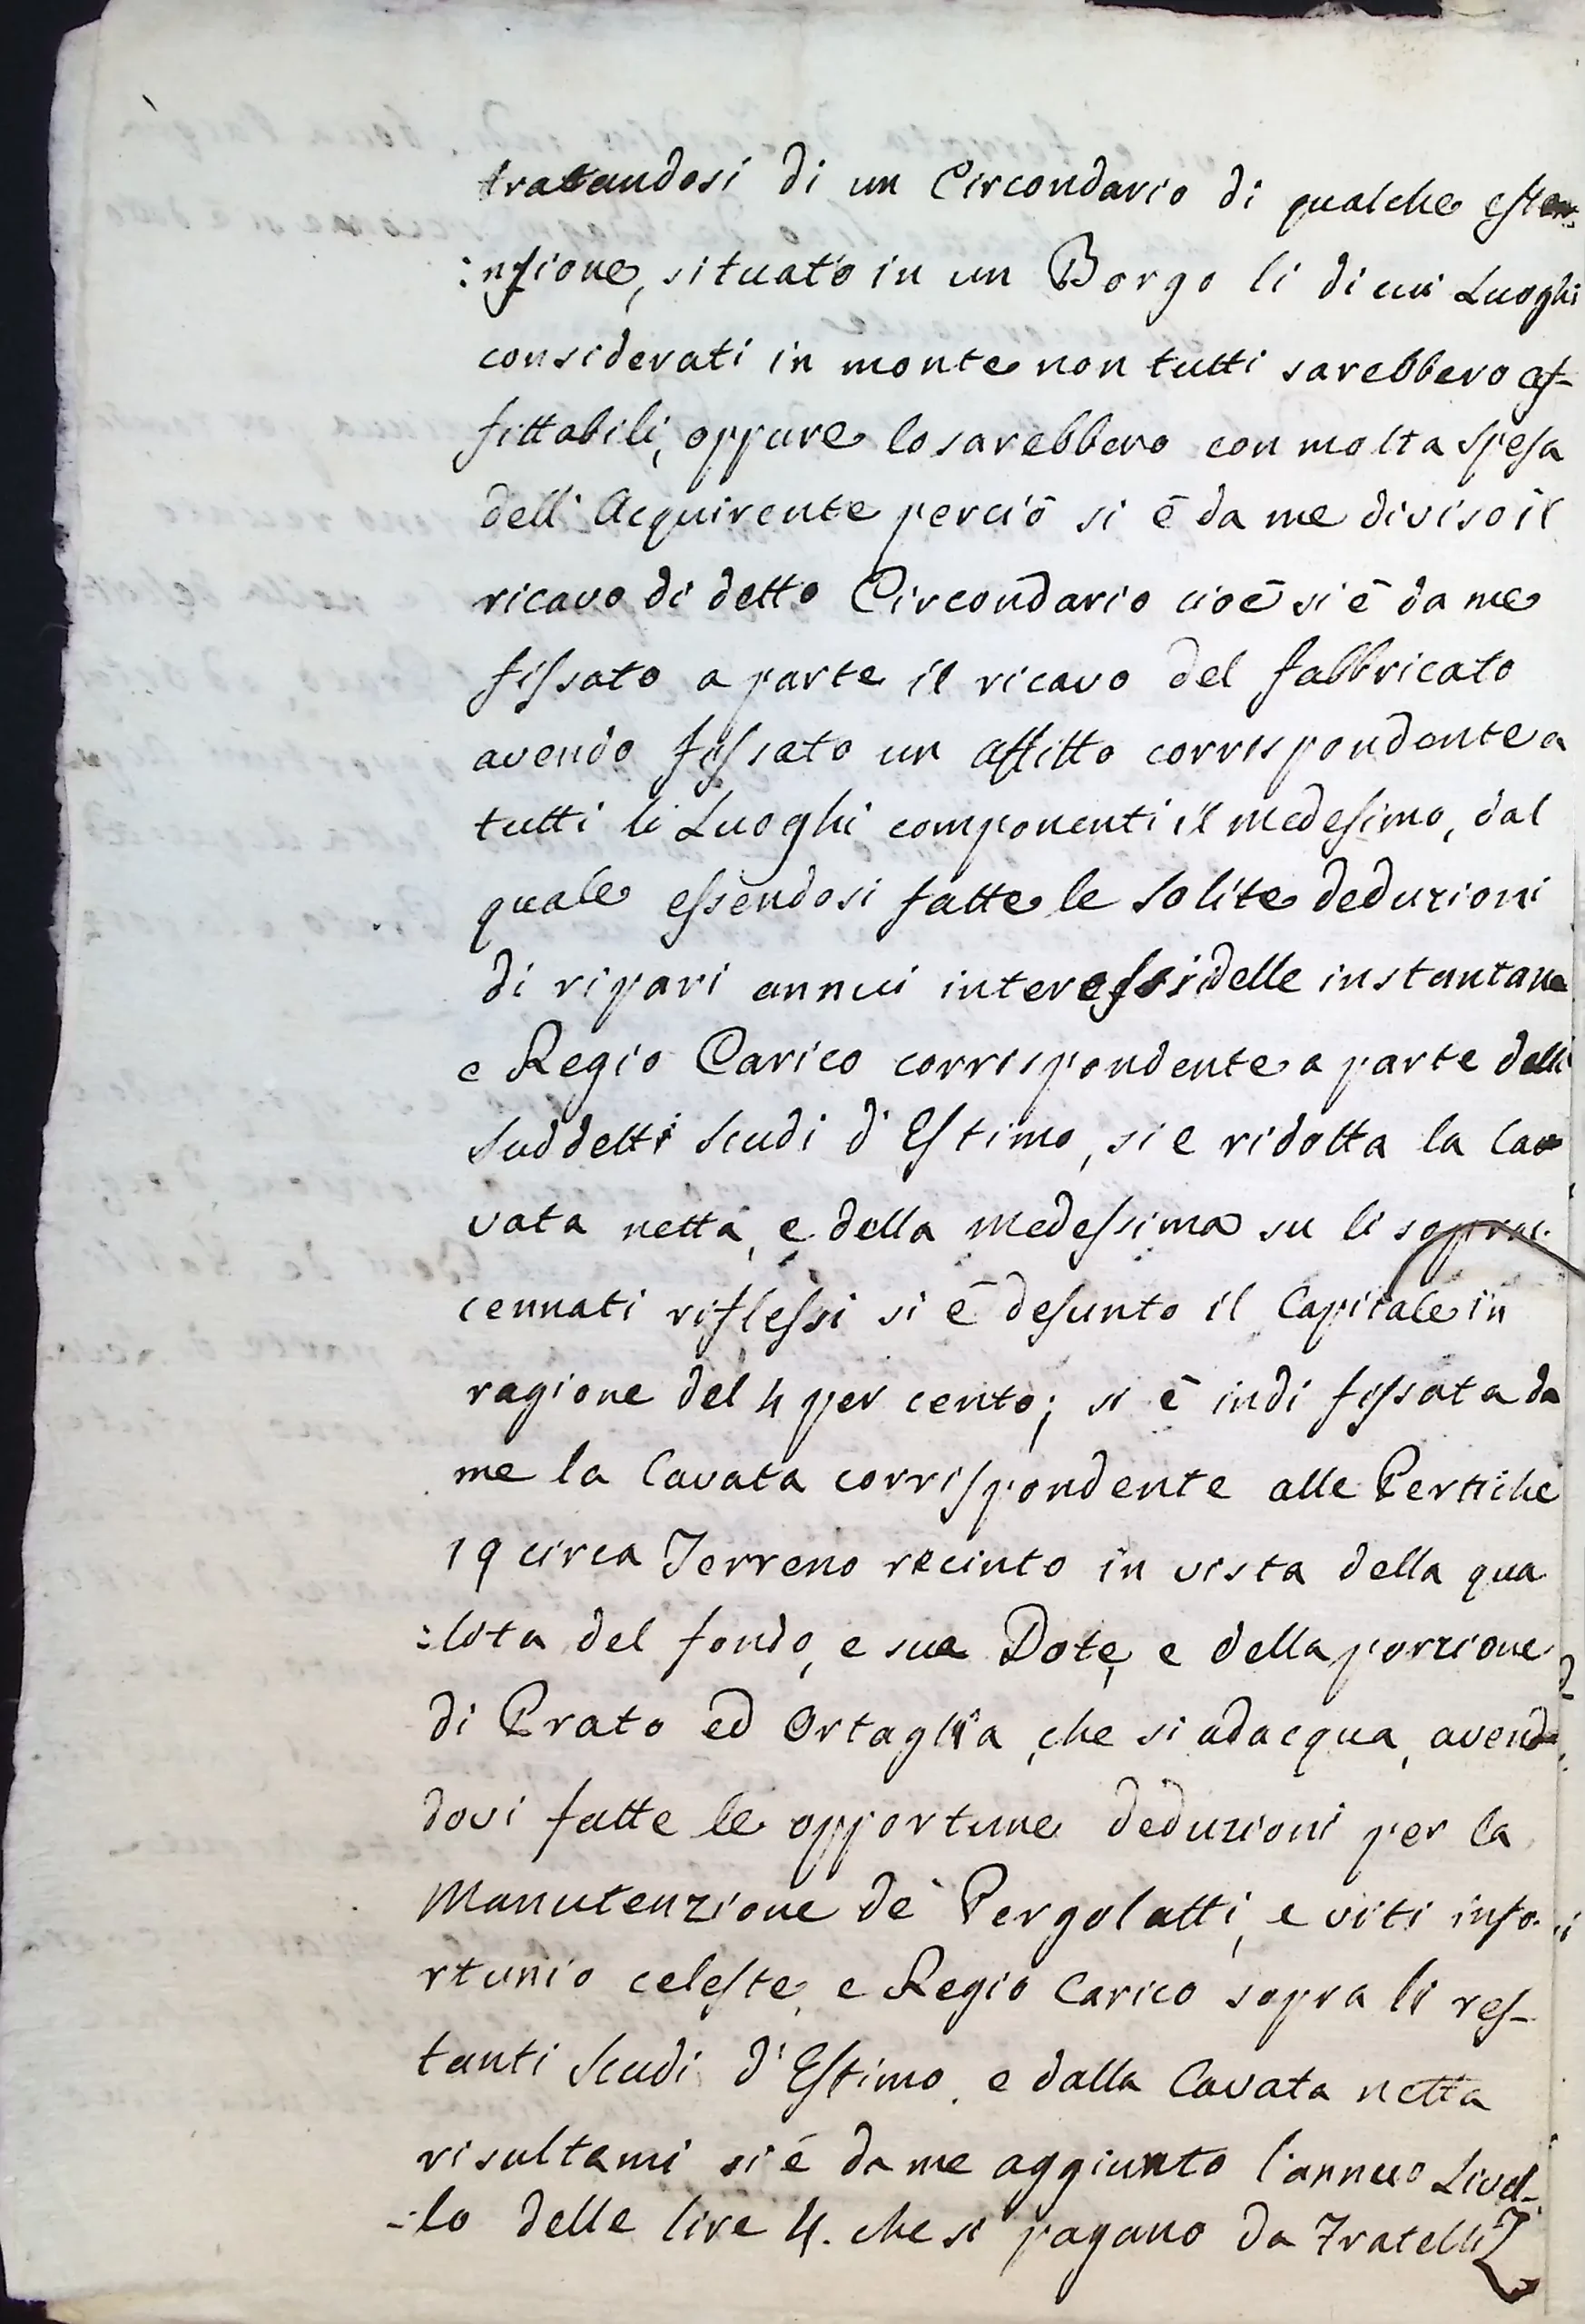 tratandosi di un Circondario di qualche esten:
:nsione, situato in un Borgo li di cui Luoghi
considerati in monte non tutti sarebbero af-
fittabili, oppure lo sarebbero con molta spesa
dell' Acquirente perciò si è da me diviso il
ricavo di detto Circondario cioè si è da me
fissato a parte il ricavo del fabbricato
avendo fissato un affitto corrispondente a
tutti li Luoghi componenti il medesimo, dal
quale essendosi fatte le solite deduzioni
di ripari annui interessi delle instantane
e Regio Carico corrispondente a parte delli
Suddetti Scudi d'Estimo, si e ridotta la Cav
vata netta, e della medessima su li sopra.
cennati riflessi si è desunto il Capitale in
ragione del 4 per cento; si è indi fissata da
me la Cavata corrispondente alle Pertiche
19 circa Terreno recinto in vista della qua
:lita del fondo, e sua Dote, e della porzione
di Prato ed Ortaglia, che si adacqua, avend
dovi fatte le opportune deduzioni per la
Manutenzione de' Pergolatti, e viti info.
rtunio celeste, e Regio Carico sopra li res-
tanti Scudi d'Estimo, e dalla Cavata netta
risultami si è da me aggiunto l'annuo Livel-
-lo delle lire 4. che si pagano da Fratelli